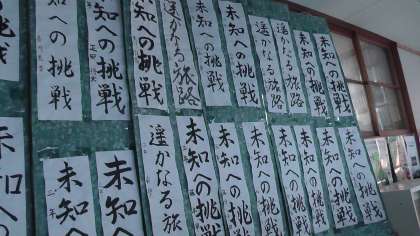 未知への挑戦
未知への挑戦
遥かなる旅路
遥かなる旅路
未知への挑戦
未知への挑戦
遥かなる旅路
知への挑戦
未知への挑戦
知への挑戦
未知への挑戦
未知への挑戦
未知への挑戦
未知への挑戦
遥かなる旅路
未知への挑戦
未知への挑戦
遥かなる旅
未知
未知へ
知への